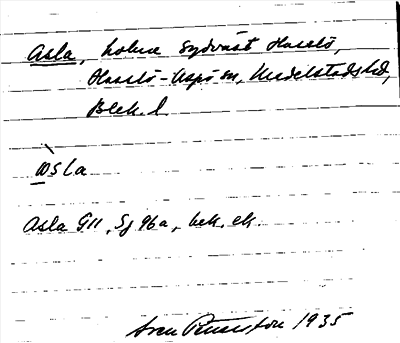 Asla, holme sydväst Hasslö,
Hasslö-Aspö sn, Medelstads hd,
Blek. l.
àsla
Asla G11, Sj 96a, bek. ek.
Sven Benson 1935